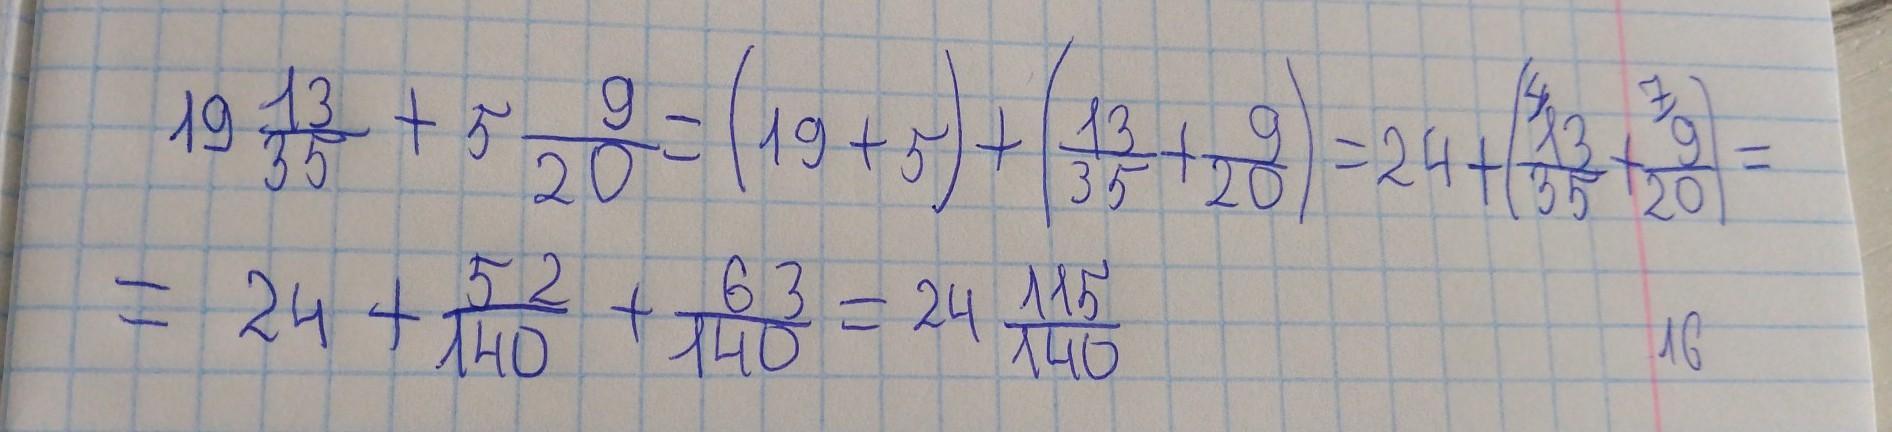 19 13/35 + 5 9/20 = (19 + 5) + (13/35 + 9/20) = 24 + (⁴⁾13/35 + ⁷⁾9/20) =
= 24 + 52/140 + 63/140 = 24 115/140
16